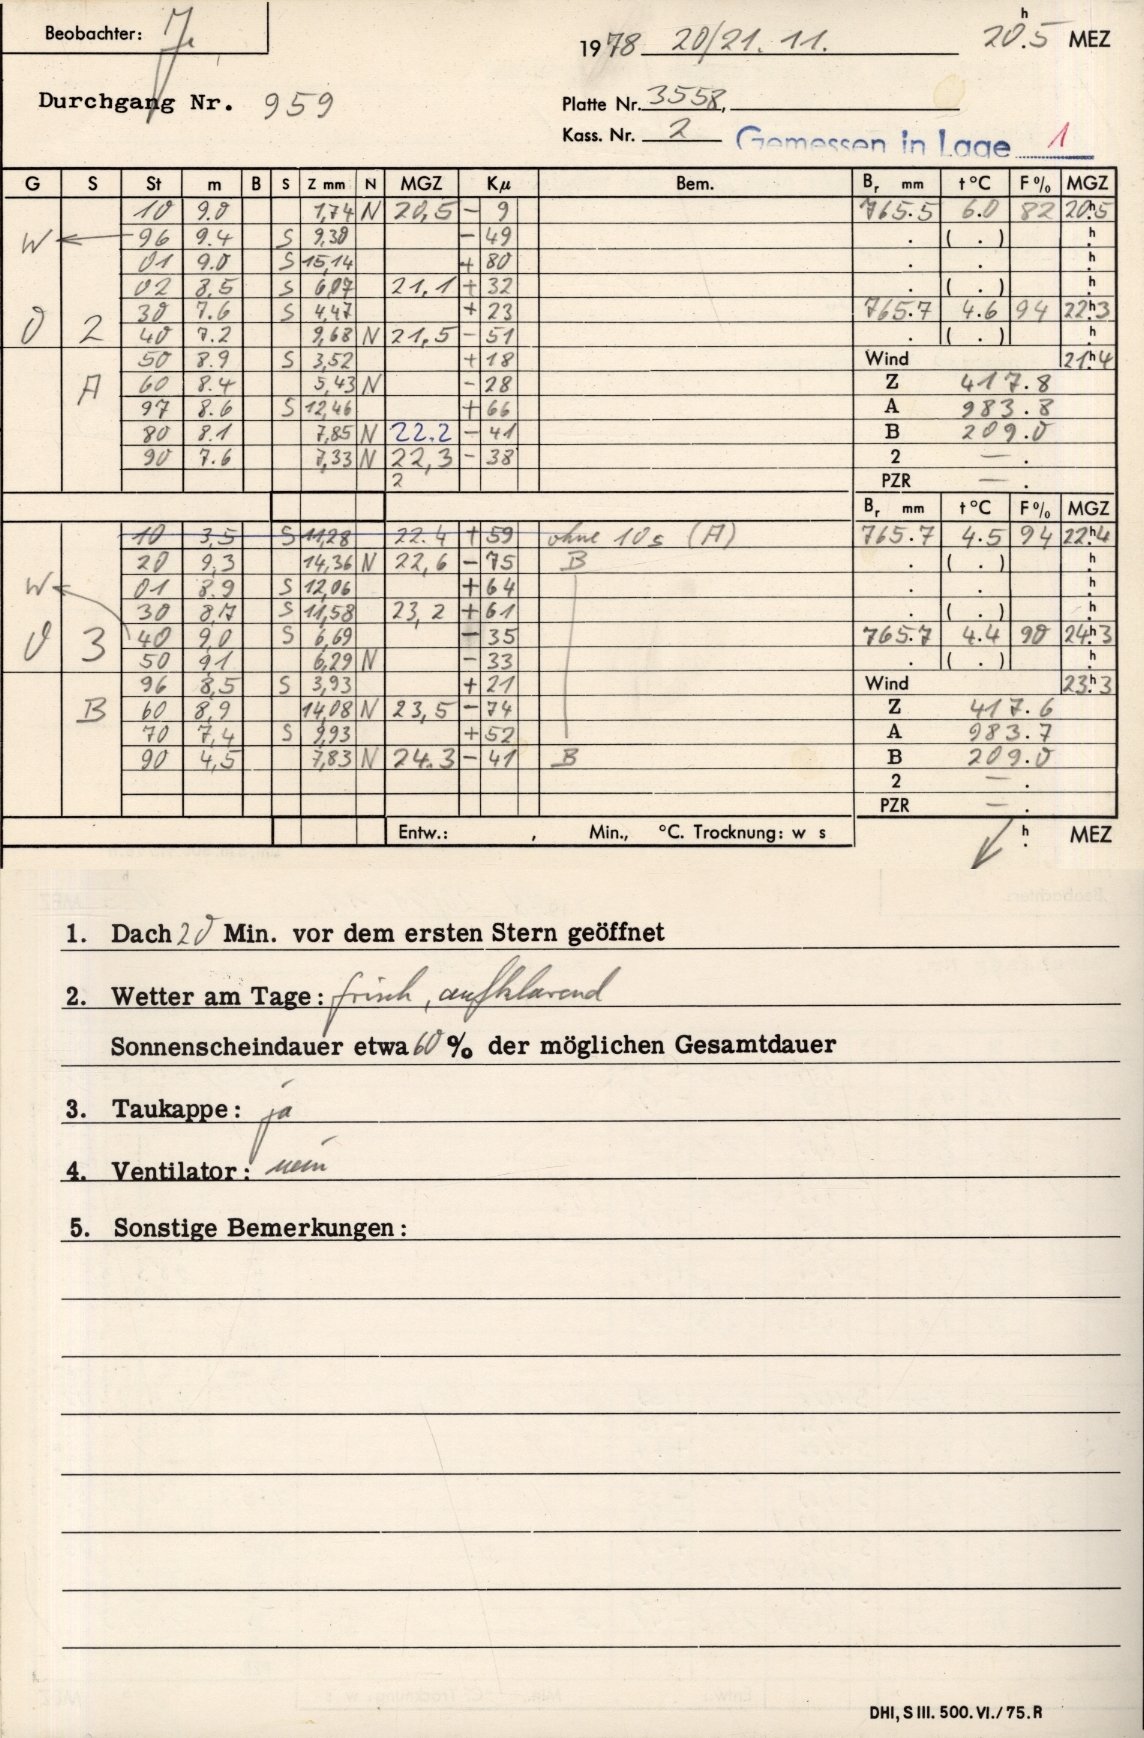 Beobachter: J.
1978 20/21. 11. 20h.5 MEZ
Durchgang Nr. 959
Platte Nr. 3558,
Kass. Nr. 2 Gemessen in Lage 1
G S St m B S Z mm N MGZ Kμ Bem. Br mm t°C F% MGZ
10 9.0 1,74 N 20,5 - 9 765.5 6.0 82 20h5
W 96 9.4 S 9,30 - 49 . ( . ) h.
01 9.0 S 15,14 + 80 . . h.
02 8,5 S 6,07 21.1 + 32 . ( . ) h.
30 7.6 S 4,47 + 23 765.7 4.6 94 22h3
0 2 40 7.2 9,68 N 21,5 - 51 . ( . ) h.
50 8.9 S 3,52 + 18 Wind 21h4
A 60 8.4 5,43 N - 28 Z 417.8
97 8.6 S 12,46 + 66 A 983.8
80 8.1 7,85 N 22.2 - 41 B 209.0
90 7.6 7,33 N 22,3 - 38 2 — .
2 PZR — .
Br mm t°C F% MGZ
10 3,5 S 11,28 22.4 + 59 ohne 10s (A) 765.7 4.5 94 22h4
20 9,3 14,36 N 22,6 - 75 B . ( . ) h.
W 01 8.9 S 12,06 + 64 . . h.
30 8,7 S 11,58 23,2 + 61 . ( . ) h.
0 3 40 9,0 S 6,69 - 35 765.7 4.4 90 24h3
50 9,1 6,29 N - 33 . ( . ) h.
96 8,5 S 3,93 + 21 Wind 23h3
B 60 8,9 14,08 N 23,5 - 74 Z 417.6
70 7,4 S 9,93 + 52 A 983.7
90 4,5 7,83 N 24.3 - 41 B B 209.0
2 — .
PZR — .
Entw.: , Min., °C. Trocknung: w s h. MEZ
1. Dach 20 Min. vor dem ersten Stern geöffnet
2. Wetter am Tage: frisch, aufklarend
Sonnenscheindauer etwa 60 % der möglichen Gesamtdauer
3. Taukappe: ja
4. Ventilator: nein
5. Sonstige Bemerkungen:
DHI, S III. 500. VI./75. R